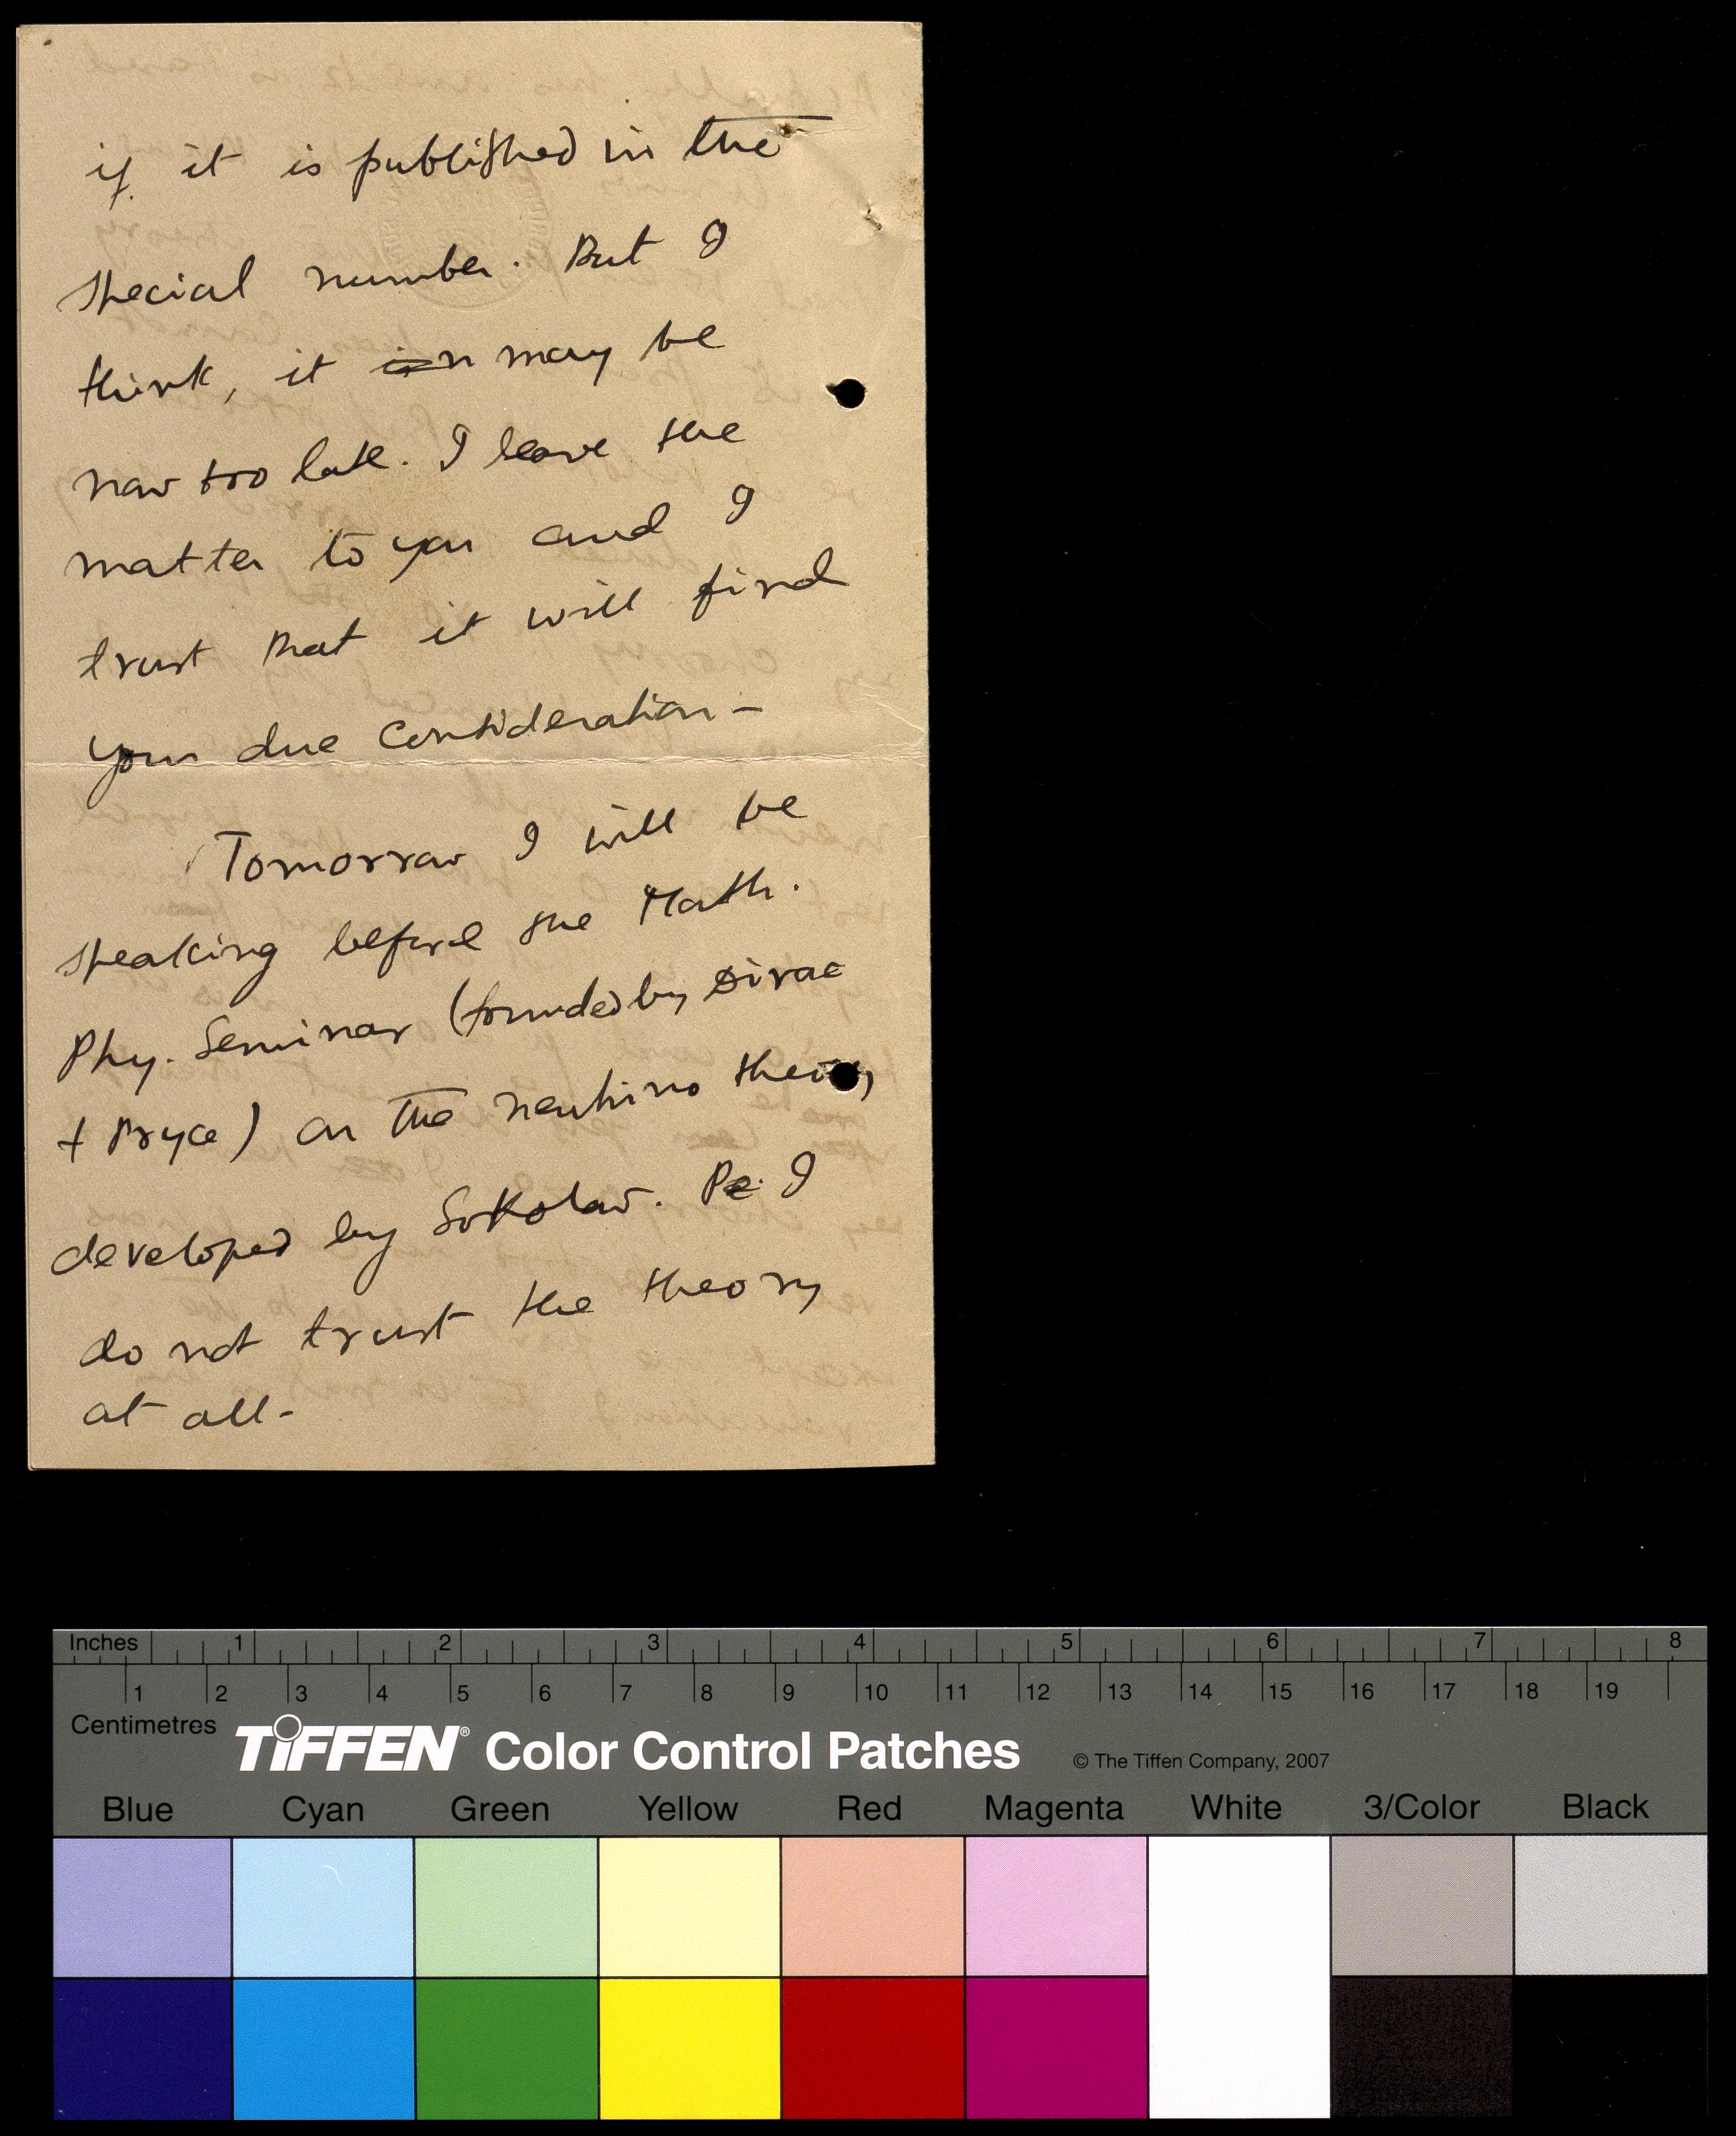 if it is published in the
special number. But I
think, it is n may be
now too late. I leave the
matter to you and I
trust that it will find
your due consideration –
Tomorrow I will be
speaking before the Math.
Phy. Seminar (founded by Dirac
+ Pryce) on the neutrino theory
developed by Sokolow. Pe. I
do not trust the theory
at all -
Inches 1 2 3 4 5 6 7 8
1 2 3 4 5 6 7 8 9 10 11 12 13 14 15 16 17 18 19
Centimetres
TIFFEN® Color Control Patches © The Tiffen Company, 2007
Blue Cyan Green Yellow Red Magenta White 3/Color Black